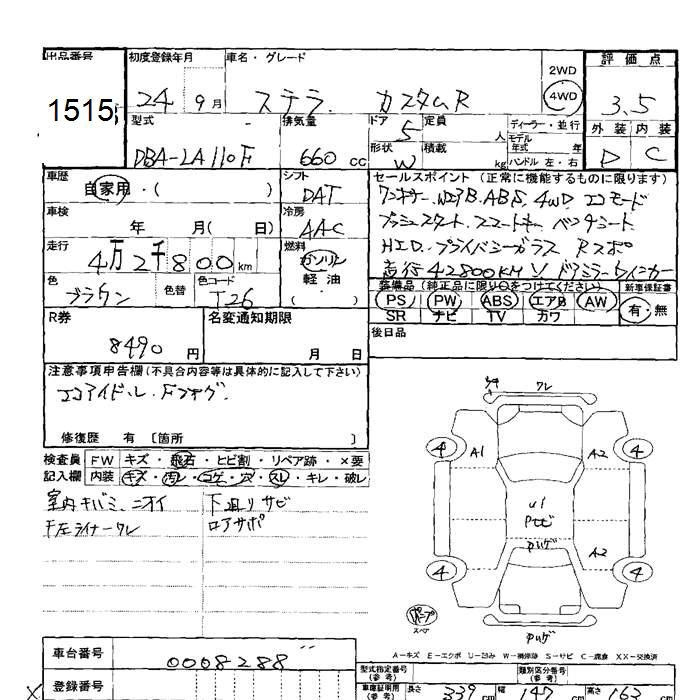 出品番号 初度登録年月 車名・グレード 評価点
1515 24 9月 ステラ カスタムR 2WD 4WD 3.5
型式 排気量 ドア 定員 ディーラー・並行 外装 内装
DBA-LA110F 660cc 5 人 モデル 年式 年 D C
形状 積載 W kg ハンドル 左・右
車歴 シフト セールスポイント(正常に機能するものに限ります)
自家用・( ) DAT ワンオーナー.WエアB.ABS.4WD エコモード
車検 冷房 プッシュスタート.スマートキー ベンチシート
年 月( 日) AAC HID.プライバシーガラス Rスポ
走行 燃料 走行42800KM ドアミラーウインカー
4万2千800km ガソリン
軽油
( )
色 色替 色コード 装備品(純正品に限り○をつけてください) 新車保証書
ブラウン T26 PS PW ABS エアB AW 有・無
SR ナビ TV カワ
R券 名変通知期限 後日品
8490円 月 日
注意事項申告欄(不具合内容等は具体的に記入して下さい)
エコアイドル.Fフォグ.
修復歴 有 [箇所 ]
検査員 FW キズ・飛石・ヒビ割・リペア跡・×要
記入欄 内装 キズ・汚レ・コゲ・穴・スレ・キレ・破レ
室内キバミ.ニオイ 下廻リサビ
F左ライナーワレ ロアサポ
ワレ
4 A1 A2 4
U1
4 A2 4
スペア
A-キズ E-エクボ U-凹み W-補修跡 S-サビ C-腐食 XX-交換済
車台番号 0008288
型式指定番号(参考) 類別区分番号(参考)
登録番号 車庫証明用(参考) 長さ 339cm 幅 147cm 高さ 163cm